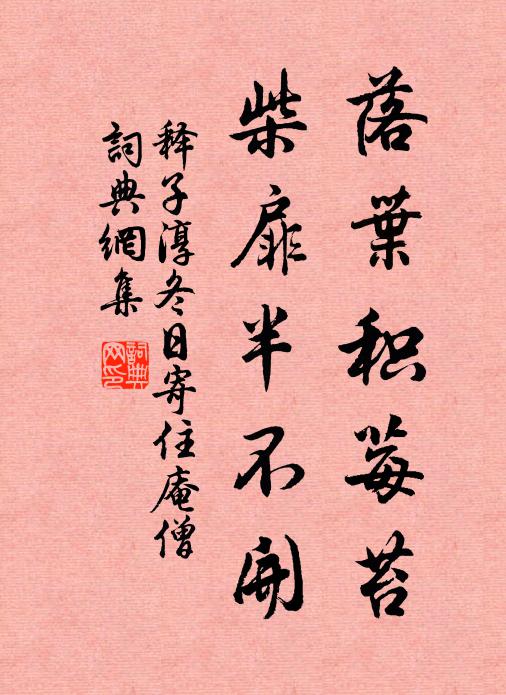 落葉积莓苔
柴扉半不開
释子淳冬日寄住庵僧
詞典網集
詞典网印